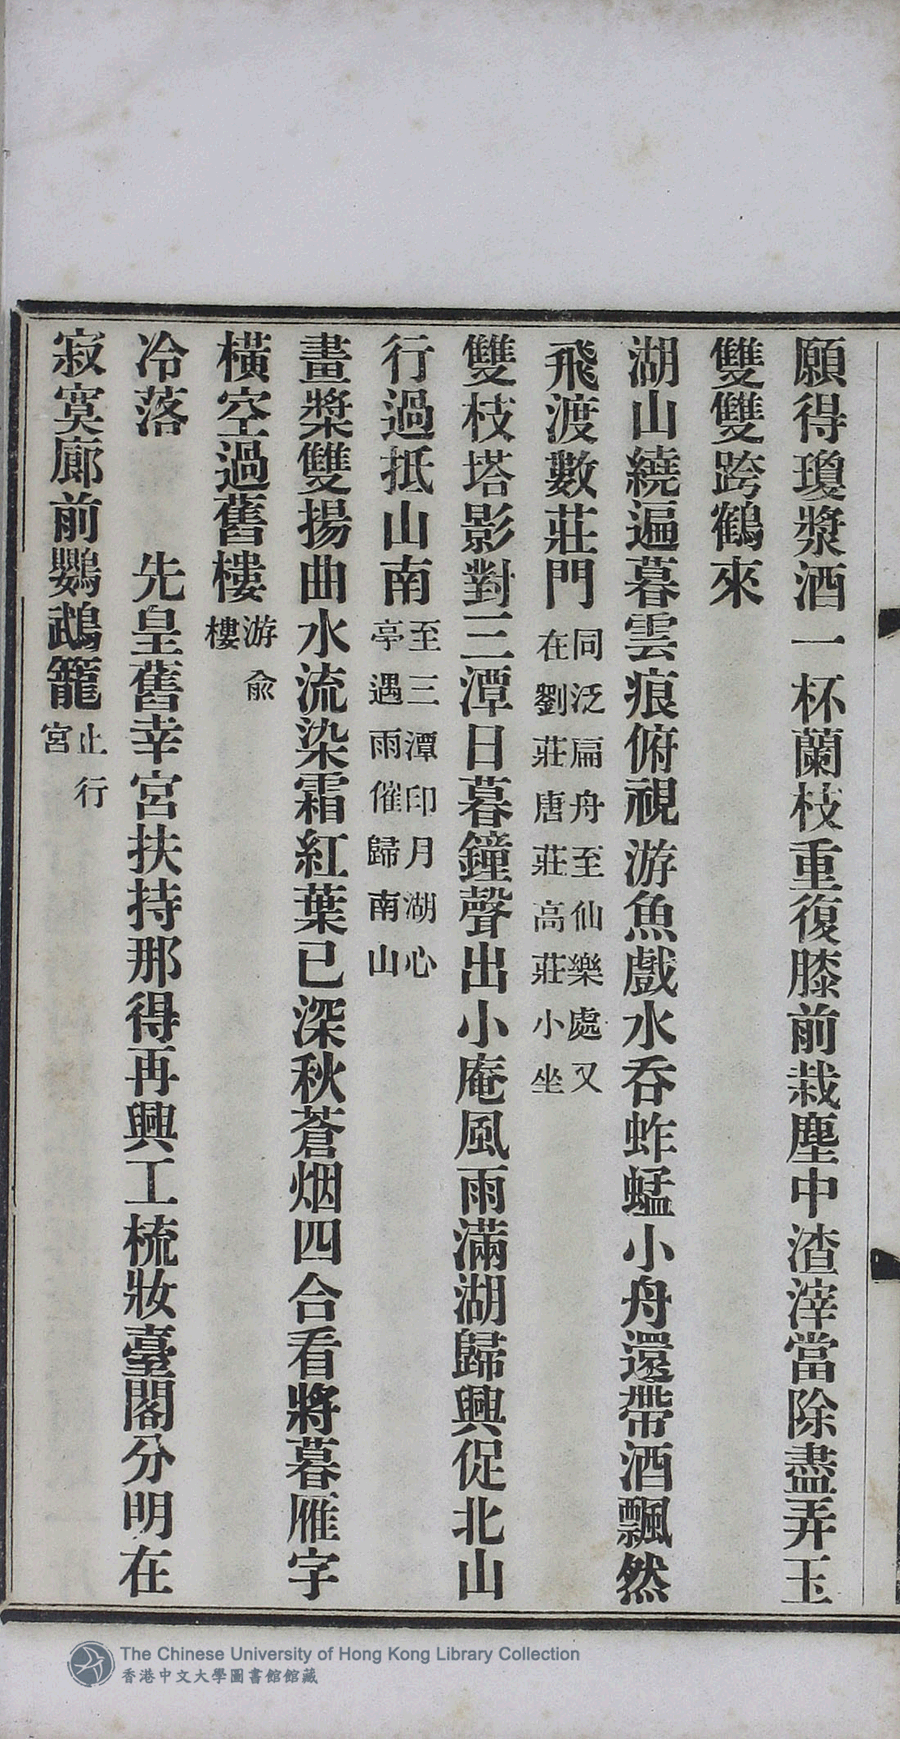 願得瓊漿酒一杯蘭枝重復膝前栽塵中渣滓當除盡弄玉
雙雙跨鶴來
湖山繞遍暮雲痕俯視游魚戲水吞蚱蜢小舟還帶酒飄然
飛渡數莊門同泛扁舟至仙樂處又
在劉莊唐莊高莊小坐
雙枝塔影對三潭日暮鐘聲出小庵風雨滿湖歸興促北山
行過抵山南至三潭印月湖心
亭遇雨催歸南山
畫槳雙揚曲水流染霜紅葉已深秋蒼烟四合看將暮雁字
橫空過舊樓游俞
樓
冷落 先皇舊幸宮扶持那得再興工梳妝臺閣分明在
寂寞廊前鸚鵡籠止行
宮
The Chinese University of Hong Kong Library Collection
香港中文大學圖書館館藏